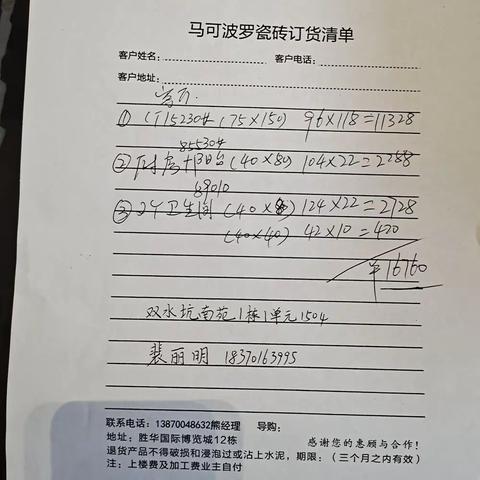 马可波罗瓷砖订货清单
客户姓名:
客户电话:
客户地址:
客厅.
① CT15230 (75×150) 96×118=11328
85530
② 厨房+阳台 (40×80) 104×22=2288
89010
③ 2个卫生间 (40×8) 124×22=2728
(40×40) 42×10=420
¥16760
双水坑南苑1栋1单元1504
裴丽明 18370163995
联系电话: 13870048632熊经理 导购:
地址: 胜华国际博览城12栋
感谢您的惠顾与合作!
退货产品不得破损和浸泡过或沾上水泥,期限:(三个月之内有效)
注: 上楼费及加工费业主自付